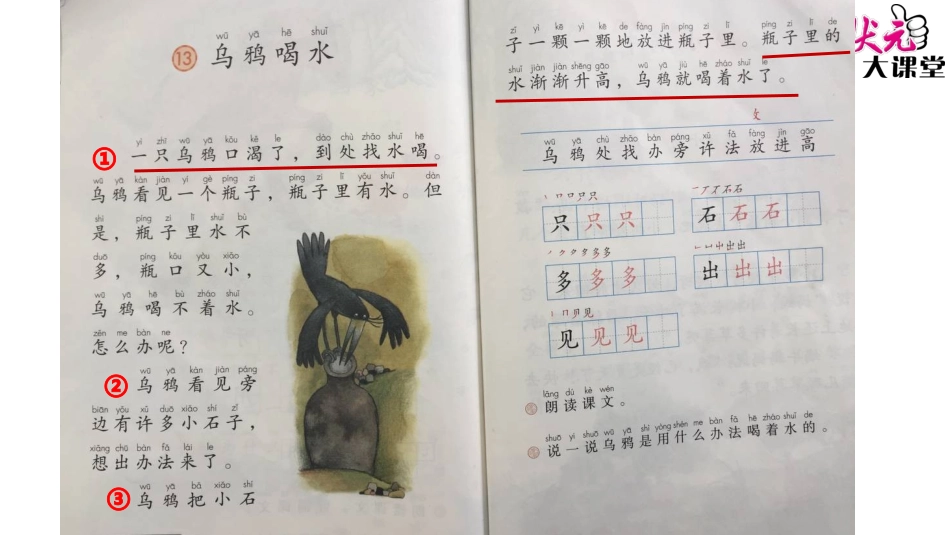 wū yā hē shuǐ
13 乌鸦喝水
yì zhī wū yā kǒu kě le dào chù zhǎo shuǐ hē
① 一只乌鸦口渴了，到处找水喝。
wū yā kàn jiàn yí gè píng zi píng zi lǐ yǒu shuǐ dàn
乌鸦看见一个瓶子，瓶子里有水。但
shì píng zi lǐ shuǐ bù
是，瓶子里水不
duō píng kǒu yòu xiǎo
多，瓶口又小，
wū yā hē bù zháo shuǐ
乌鸦喝不着水。
zěn me bàn ne
怎么办呢？
wū yā kàn jiàn páng
② 乌鸦看见旁
biān yǒu xǔ duō xiǎo shí zǐ
边有许多小石子，
xiǎng chū bàn fǎ lái le
想出办法来了。
wū yā bǎ xiǎo shí
③ 乌鸦把小石
zǐ yì kē yì kē de fàng jìn píng zi lǐ píng zi lǐ de
子一颗一颗地放进瓶子里。瓶子里的
shuǐ jiàn jiàn shēng gāo wū yā jiù hē zháo shuǐ le
水渐渐升高，乌鸦就喝着水了。
攵
wū yā chù zhǎo bàn páng xǔ fǎ fàng jìn gāo
乌鸦处找办旁许法放进高
只只只 石石石
多多多 出出出
见见见
lǎng dú kè wén
朗读课文。
shuō yi shuō wū yā shì yòng shén me bàn fǎ hē zháo shuǐ de
说一说乌鸦是用什么办法喝着水的。
状元
大课堂